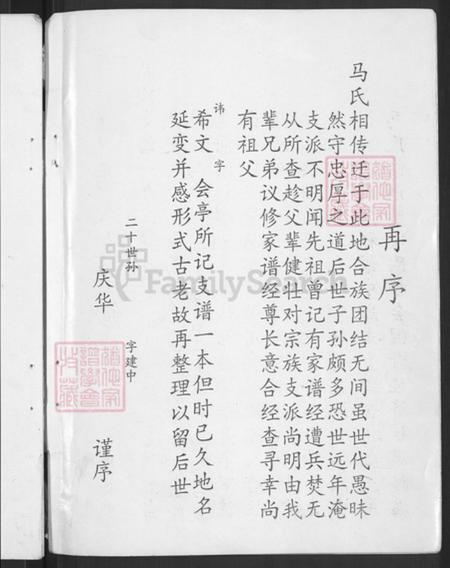 再序
马氏相传迁于此地合族团结无间虽世代愚昧
然守忠厚之道后世子孙颇多恐世远年淹
支派不明闻先祖曾记有家谱经遭兵焚无
从所查趁父辈健壮对宗族支派尚明由我
辈兄弟议修家谱经尊长意合经查寻幸尚
有祖父
讳希文字会亭所记支谱一本但时已久地名
延变并感形式古老故再整理以留后世
二十世孙庆华字建中谨序
FamilySearch